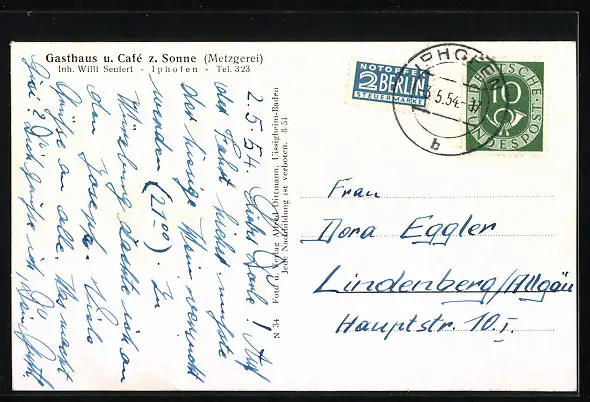 Gasthaus u. Café z. Sonne (Metzgerei)
Inh. Willi Seufert - Iphofen - Tel. 323
2.5.54. Liebe Dorle! Auf
der Fahrt hierher mußte
der hiesige Wein versucht
werden (21⁰⁰). In
Würzburg dachte ich an
den Joseph. Viele
Grüße an alle. Was macht
Dich grüße ich, Dein
N 34 Foto u. Verlag Alfred Dittmann, Uissigheim-Baden
Jede Nachbildung ist verboten. 8 51
NOTOPFER
2 BERLIN
STEUERMARKE
IPHOFEN
3.5.54.-17
b
DEUTSCHE
BUNDESPOST
10
Frau
Dora Eggler
Lindenberg/Allgäu
Hauptstr. 10.I.